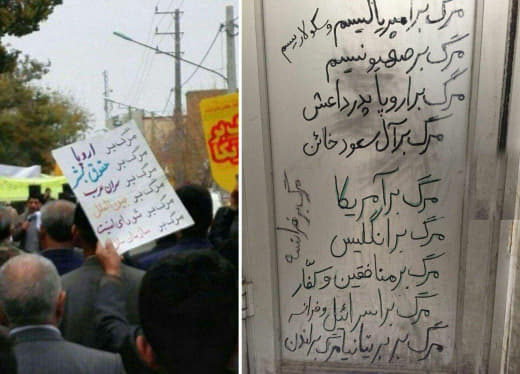 مرگ بر اروپا
مرگ بر حقوق بشر
مرگ بر سران عرب
مرگ بر بین الملل
مرگ بر شورای امنیت
مرگ بر سازمان ملل
مرگ بر امپریالیسم و سکولاریسم
مرگ بر صهیونیسم
مرگ بر اروپا پدر داعش
مرگ بر آل سعود خائن
مرگ بر آمریکا
مرگ بر انگلیس
مرگ بر منافقین و کفّار
مرگ بر اسرائیل و فرانسه
مرگ بر بریتانیا مرگ بر اندن
مرگ بر فرانسه